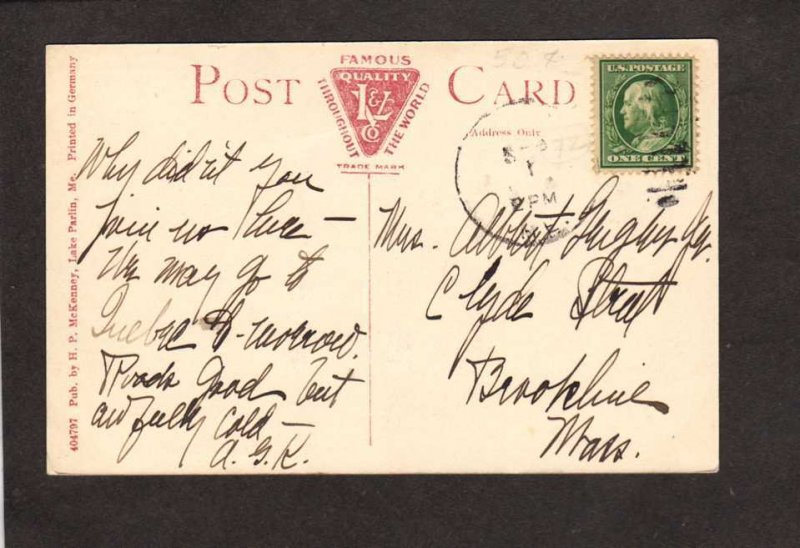 POST CARD
FAMOUS
QUALITY
L&L
CO
THROUGHOUT
THE WORLD
TRADE MARK
Address Only
U.S. POSTAGE
ONE CENT
2 PM
404797 Pub. by H. P. McKenney, Lake Parlin, Me. Printed in Germany
Why didn't you
join us here —
We may go to
Quebec to-morrow.
Roads good but
awfully cold —
A. G. K.
Mrs. Albert
Clyde Street
Brookline
Mass.